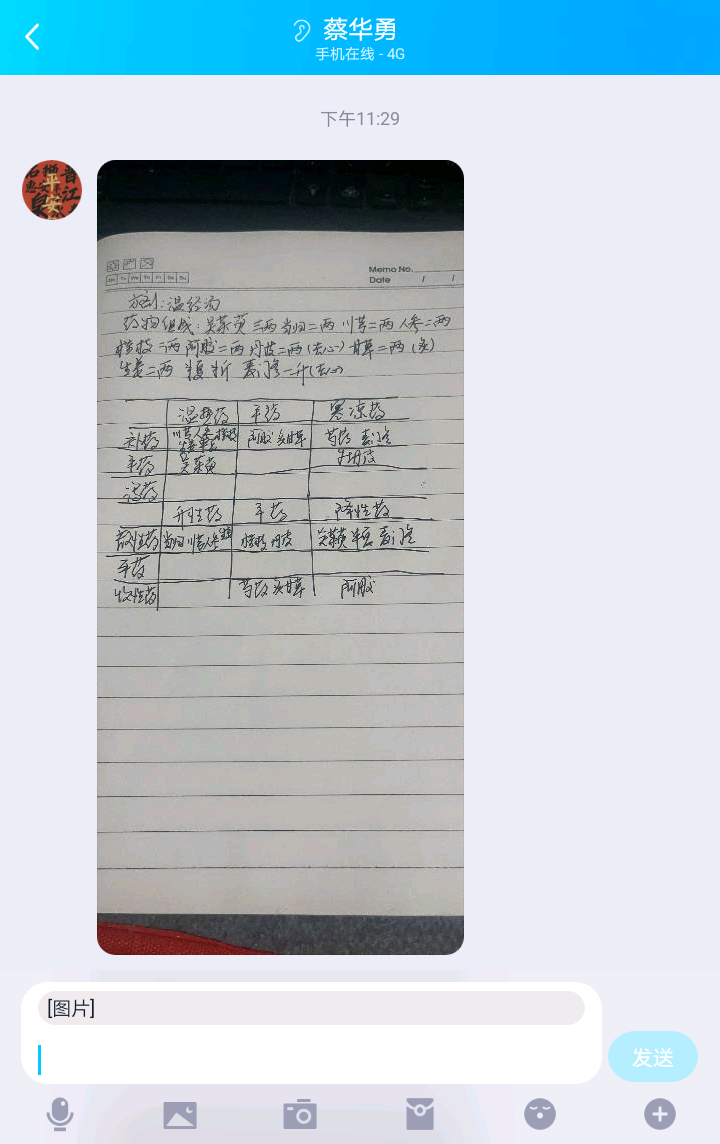 蔡华勇
手机在线 - 4G
下午11:29
Memo No.
Date / /
Mo Tu We Th Fr Sa Su
方剂:温经汤
药物组成:吴茱萸三两 当归二两 川芎二两 人参二两
桂枝二两 阿胶二两 丹皮二两(去心) 甘草二两(炙)
生姜二两 半夏半升 麦门冬一升(去心)
温热药 平药 寒凉药
补药 川芎 人参 桂枝 阿胶 炙甘草 芍药 麦门冬
平药 吴茱萸 牡丹皮
泻药
升性药 平药 降性药
散性药 当归 川芎 人参 生姜 桂枝 丹皮 吴茱萸 半夏 麦门冬
平药
收性药 芍药 炙甘草 阿胶
[图片]
发送